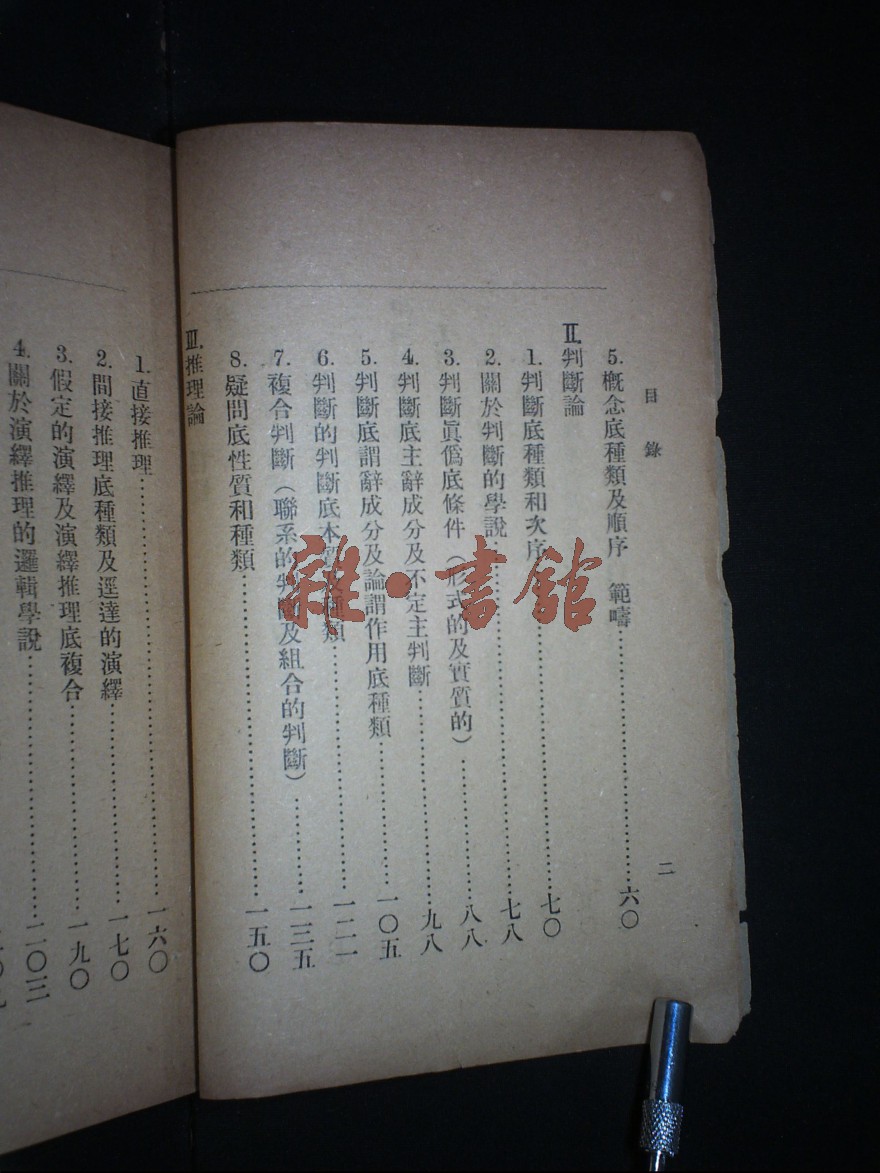 目錄
二
5. 概念底種類及順序 範疇……六〇
II. 判斷論
1. 判斷底種類和次序……七〇
2. 關於判斷的學說……七八
3. 判斷眞僞底條件（形式的及實質的）……八八
4. 判斷底主辭成分及不定主判斷……九八
5. 判斷底謂辭成分及論謂作用底種類……一〇五
6. 判斷的判斷底本質及種類……一二一
7. 複合判斷（聯系的判斷及組合的判斷）……一三五
8. 疑問底性質和種類……一五〇
III. 推理論
1. 直接推理……一六〇
2. 間接推理底種類及逕達的演繹……一七〇
3. 假定的演繹及演繹推理底複合……一九〇
4. 關於演繹推理的邏輯學說……二〇三
雜·書館